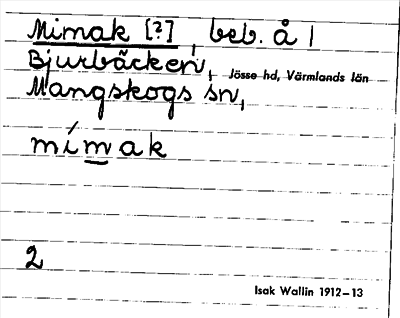 Mimak [?], beb. å |
Bjurbäcken, Jösse hd, Värmlands län
Mangskogs sn,
mímak
2
Isak Wallin 1912–13